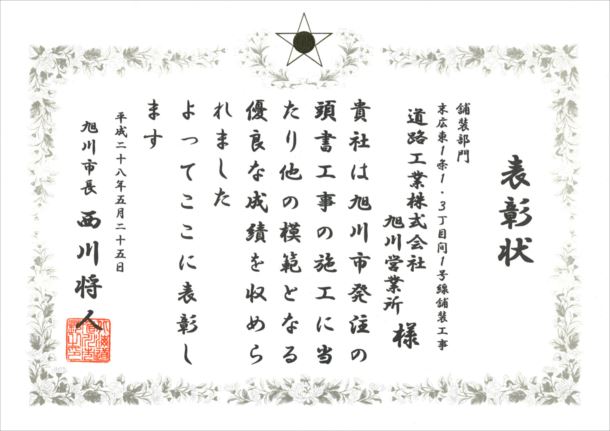 表彰状
舗装部門
末広東1条1．3丁目间1号線舗装工事
道路工業株式会社
旭川営業所 様
貴社は旭川市発注の
頭書工事の施工に当
たり他の模範となる
優良な成績を収めら
れました
よってここに表彰し
ます
平成二十八年五月二十五日
旭川市長 西川将人